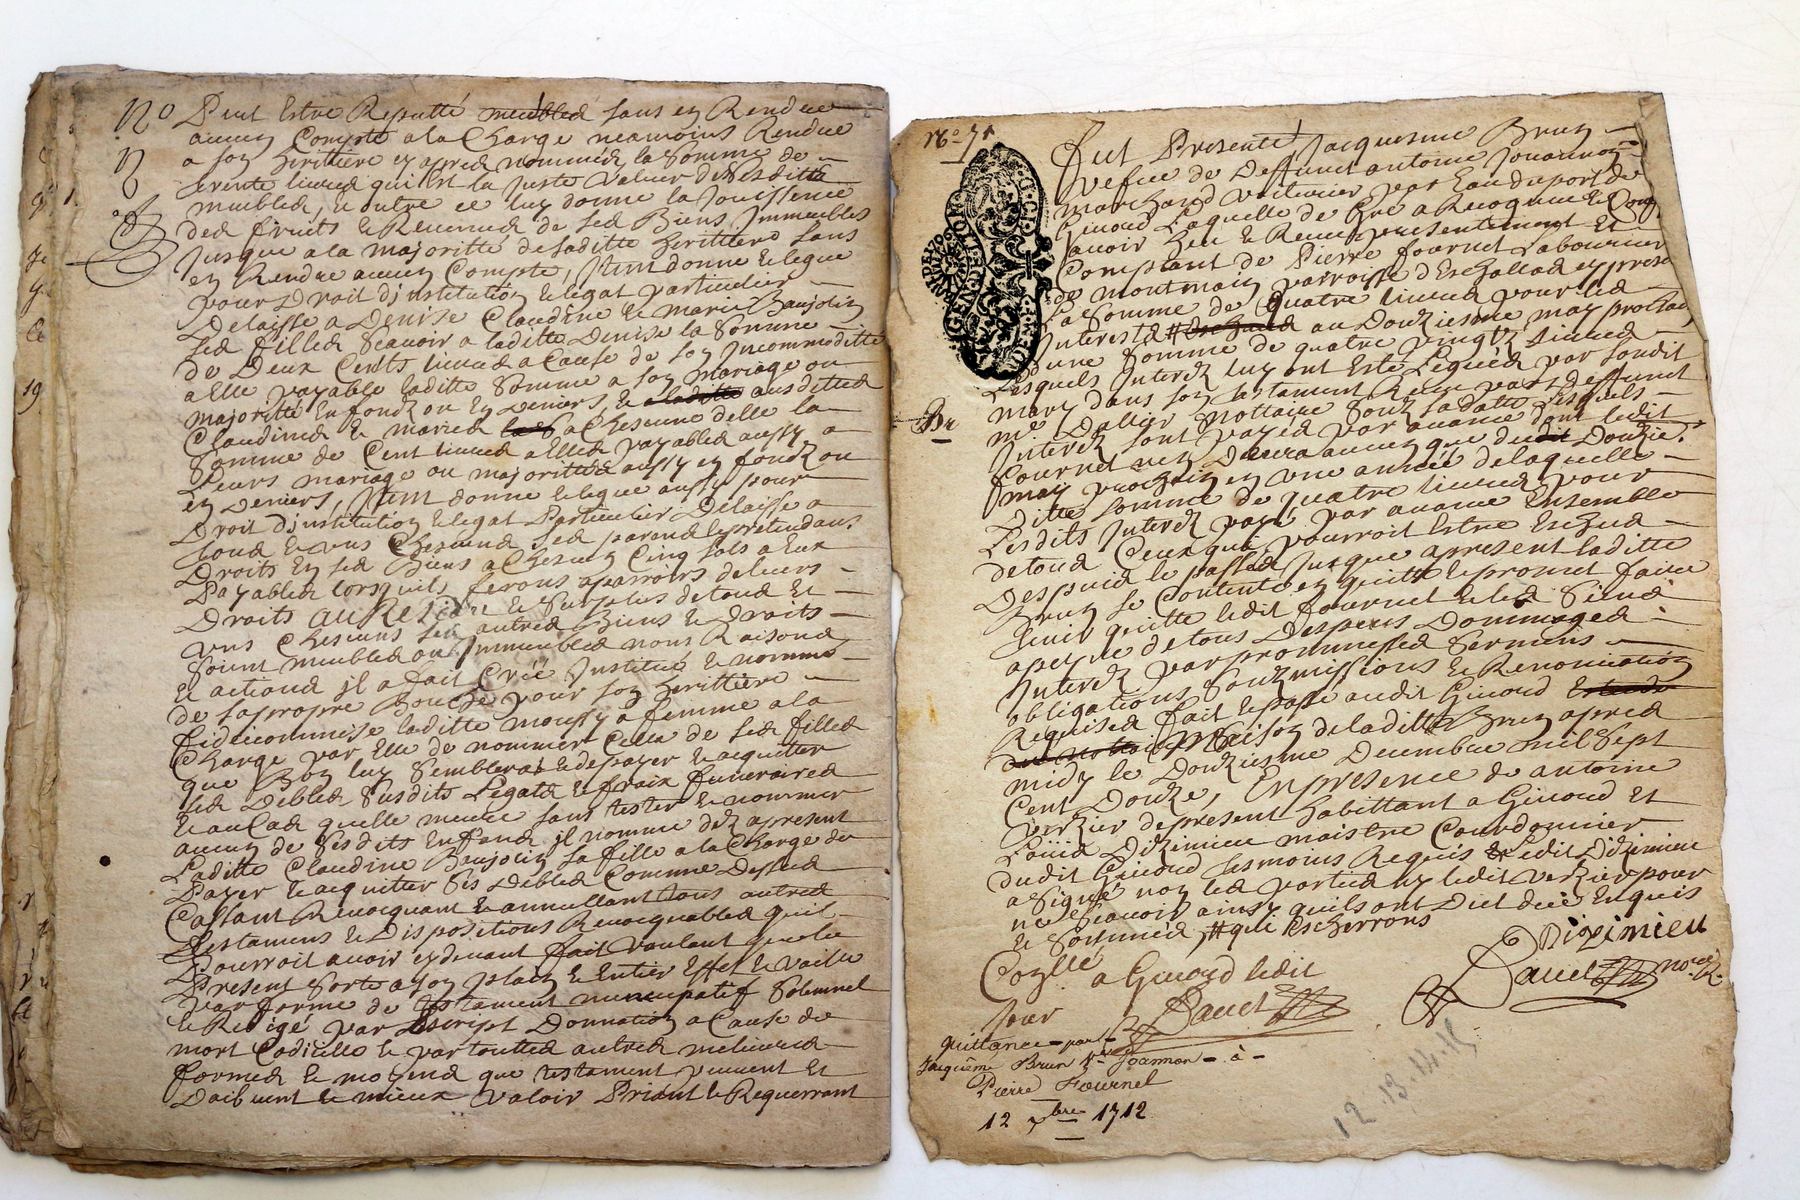 No Peut Estre Reputté meubled sans en Rendre
aucun Compte a la Charge neamoins Rendre
a son heritiere cy apred nommée la Somme de
trente livred qui est la Juste valeur desdittd
meubled, & outre ce luy donne la Jouissence
ded fruits & Revenud de sed Biens Immeubles
Jusque a la majoritté de saditte heritiere sans
en Rendre aucun Compte, Item donne & legue
pour Droit d'institution & legat particulier
Delaisse a Denise Claudine & marie Baujolin
sed filled Scavoir a laditte Denise la Somme
de Deux Cents livred a Cause de son Incommoditté
a Elle payable laditte Somme a son mariage ou
majoritté En fondz ou En Deniers, & a laditte ausdittes
Claudined & maried a Chescune delle la
Somme de Cent livred a Elled payabled aussy a
Leurs mariage ou majoritted aussy en fondz ou
en Deniers, Item donne & legue aussy pour
Droit d'institution & legat Particulier Delaisse a
toud & uns Chescund sed parand & pretendans
Droits En sed Biens a Chescun Cinq sols a Eux
Payabled lorsquils ferons aparroirs de leurs
Droits au Residu & Surplus de toud Et
uns Chescuns sed autred Biens & Droits
soient meubled ou Immeubled nons Raisond
& actiond il a fait Créé Institué & nommé
de sa propre Bouche pour son heritiere
fideicommise laditte moussy sa femme a la
Charge par Elle de nommer Celle de sed filled
que Bon luy Semblera & de payer & acquitter
sed Debted Susdits Legatd & fraix funeraired
& au Cad quelle meure sans tester & nommer
aucun de sesdits Enfand il nomme dez apresent
Laditte Claudine Baujolin sa fille a la Charge de
Payer & acquitter ses Debted Comme Dessud
Cassant Revocquant & annullant tous autred
Testamens & Dispositions Revocquabled quil
Pourroit avoir cy devant fait voulant que le
Present Sorte a son plain & Entier Effet & vaille
par forme de testament nuncupatif Solemnel
& Redigé par Escript Donnation a Cause de
mort Codicille & par touttes autred melieured
formed & moyend que testament peuvent Et
Doibvent le mieux valoir Priant & Requerrant
No 71
GEN DE LION
Fut Presente Jacquesme Brun
vefve de Deffunt antoine Jouannon
marchand voiturier par Eau du port de
Givord Laquelle de Gré a Recognue & Conf
avoir Heu & Receu presentement Et
Comptant de Pierre fournel Laboureur
de montmain parroisse d'Eschallad cy prese
La Somme de quatre livred pour led
Interestd # Escheud au Douziesme may prochain
d'une somme de quatre vingtz livred
Lesquels Interetz luy ont Esté Leguéd par sondit
mary dans son testament Receu par deffunct
me. Dallier Nottaire Souz sa datte Lesquels
Interetz sont payéd par avance dont ledit
fournel n'en Devra aucun que dudit Douzie.
may prochain en une année de laquelle
Ditte somme de quatre livred pour
Lesdits Interetz payé par avance Ensemble
de toud Ceux qui pourroit Estre Escheud
Despuid le passed Jusque apresent laditte
Brun se Contente en quitte & promet faire
tenir quitte ledit fournel & led Siend
a peyne de tous Despens Dommaged
Interetz par promessed Sermens
obligations Soubzmissions & Renonciation
Requised fait & passé audit Givord
Maison de laditte Brun apred
midy le Douziesme Decembre mil Sept
Cent Douze, En presence de antoine
verzier de present habittant a Givord Et
Loüid Dizimieu maistre Courdonnier
dudit Givord tesmoins Requis & Ledit Dizimieu
a Signé non led partied ny ledit verzier pour
ne scavoir ainsy quils ont Dict deüe Enquis
& Sommés, # qui Escherrons
Dizimieu
Conllé a Givord ledit
Jour
Dauel
Dauel nore R.
quittance par
Jacquême Brun Ve Joannon à
Pierre Fournel
12 xbre 1712
12.13.14.15